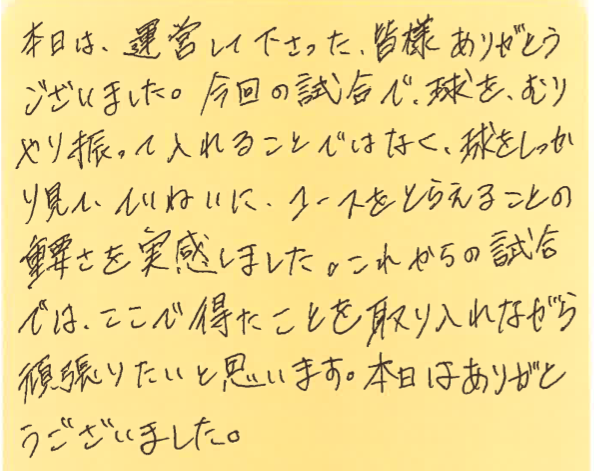 本日は、運営して下さった、皆様ありがとう
ございました。今回の試合で、球を、むり
やり振って入れることではなく、球をしっか
り見て、ていねいに、コースをとらえることの
重要さを実感しました。これからの試合
では、ここで得たことを取り入れながら
頑張りたいと思います。本日はありがと
うございました。